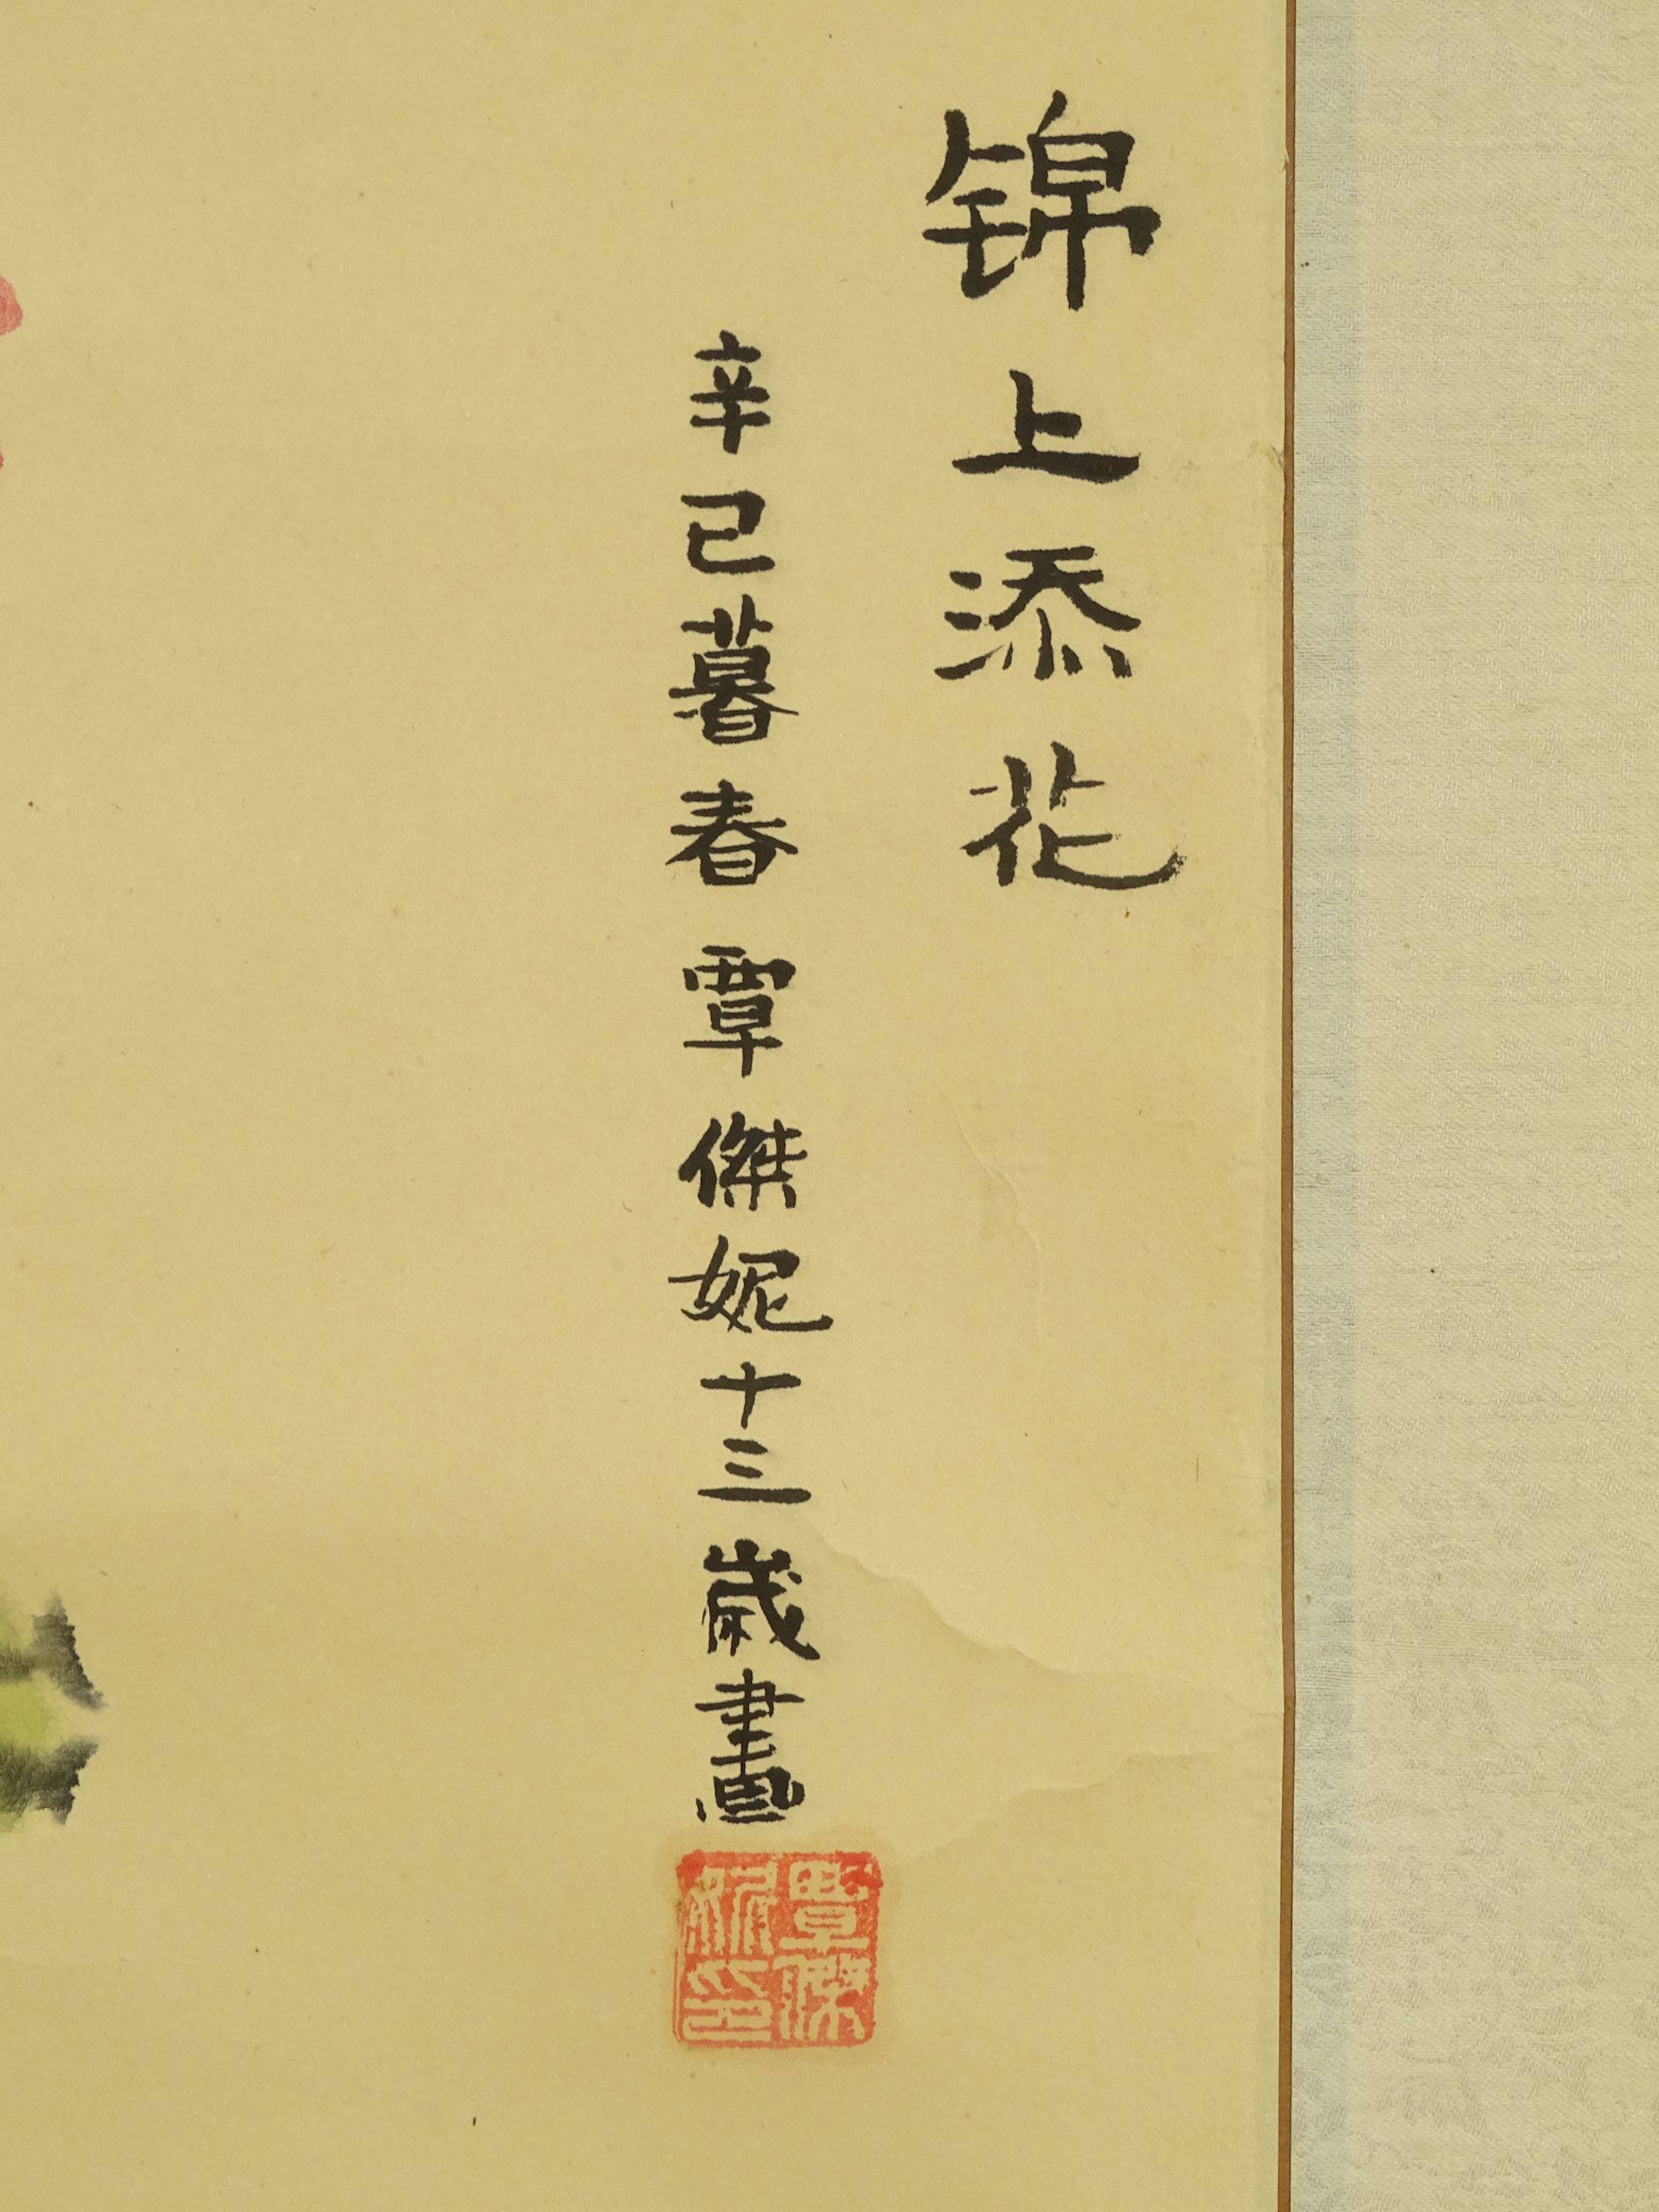 锦上添花
辛已暮春覃傑妮十三歲畫
覃傑妮印